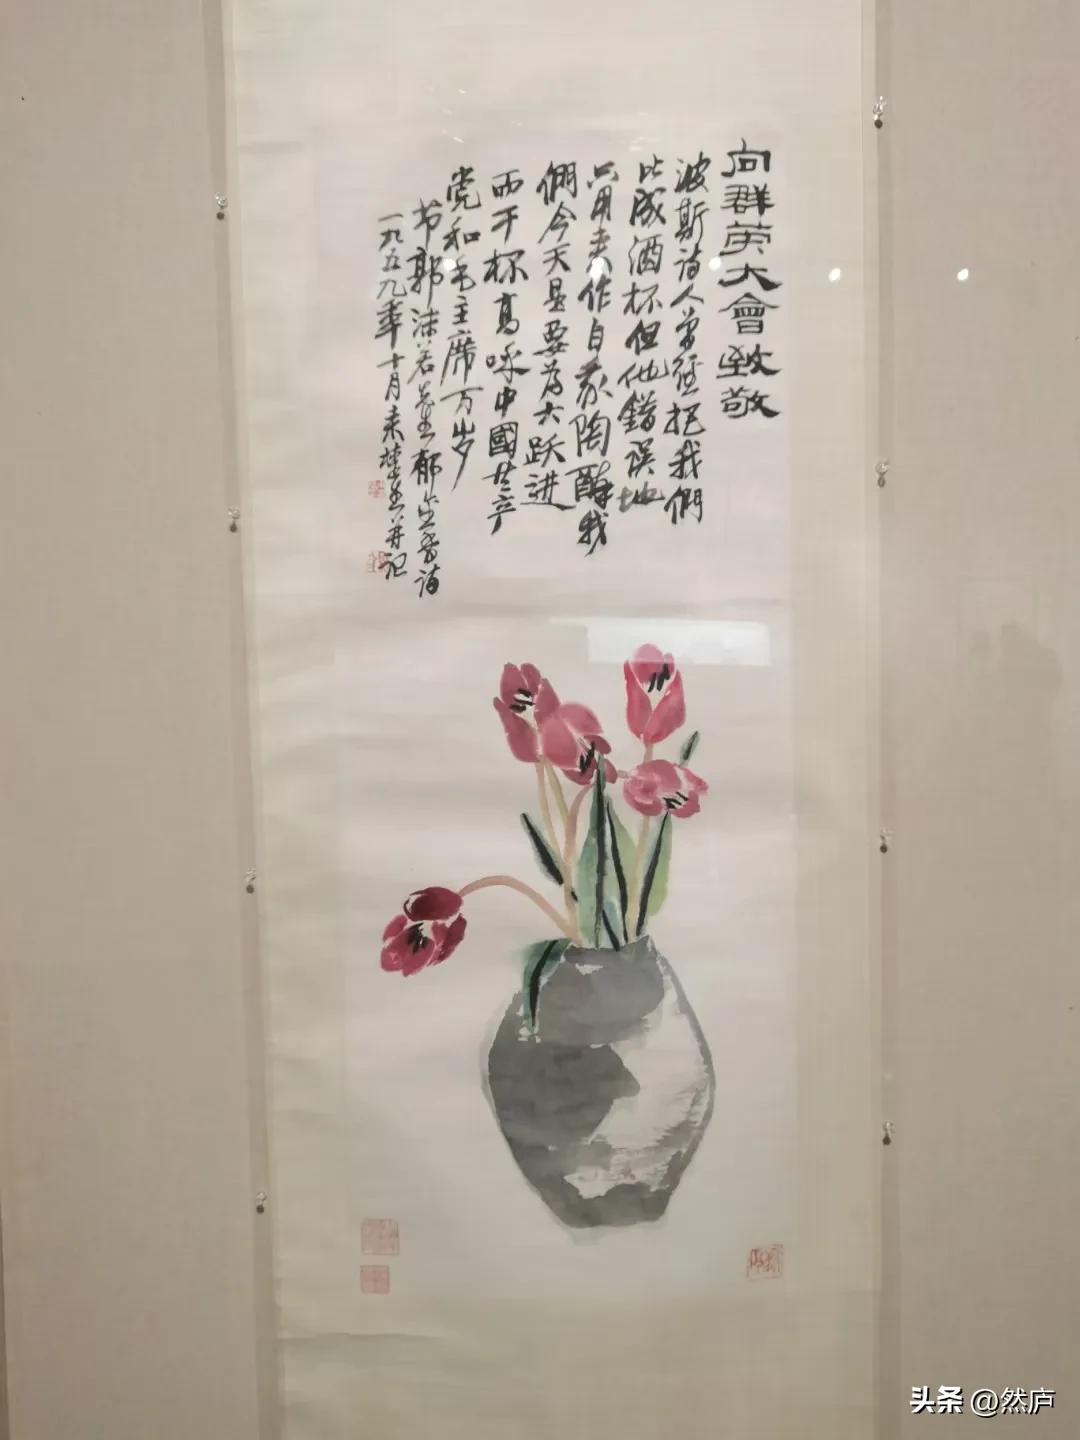 向群英大會致敬
波斯诗人曾经把我們
比成酒杯但他錯误地
只用来作自我陶醉我
們今天是要为大跃进
而干杯高呼中國共产
党和毛主席万岁
节郭沫若先生郁金香诗
一九五九年十月来楚生并记
头条 @然庐